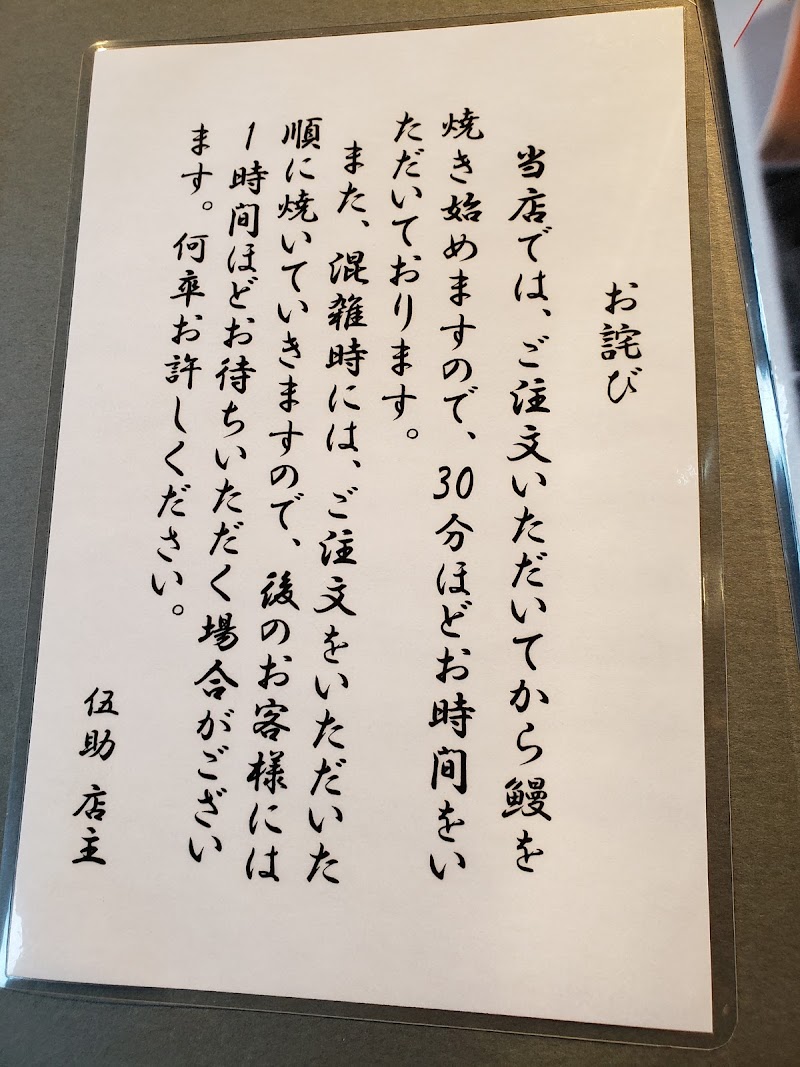 お詫び
当店では、ご注文いただいてから鰻を
焼き始めますので、30分ほどお時間をい
ただいております。
また、混雑時には、ご注文をいただいた
順に焼いていきますので、後のお客様には
1時間ほどお待ちいただく場合がござい
ます。何卒お許しください。
伍助 店主